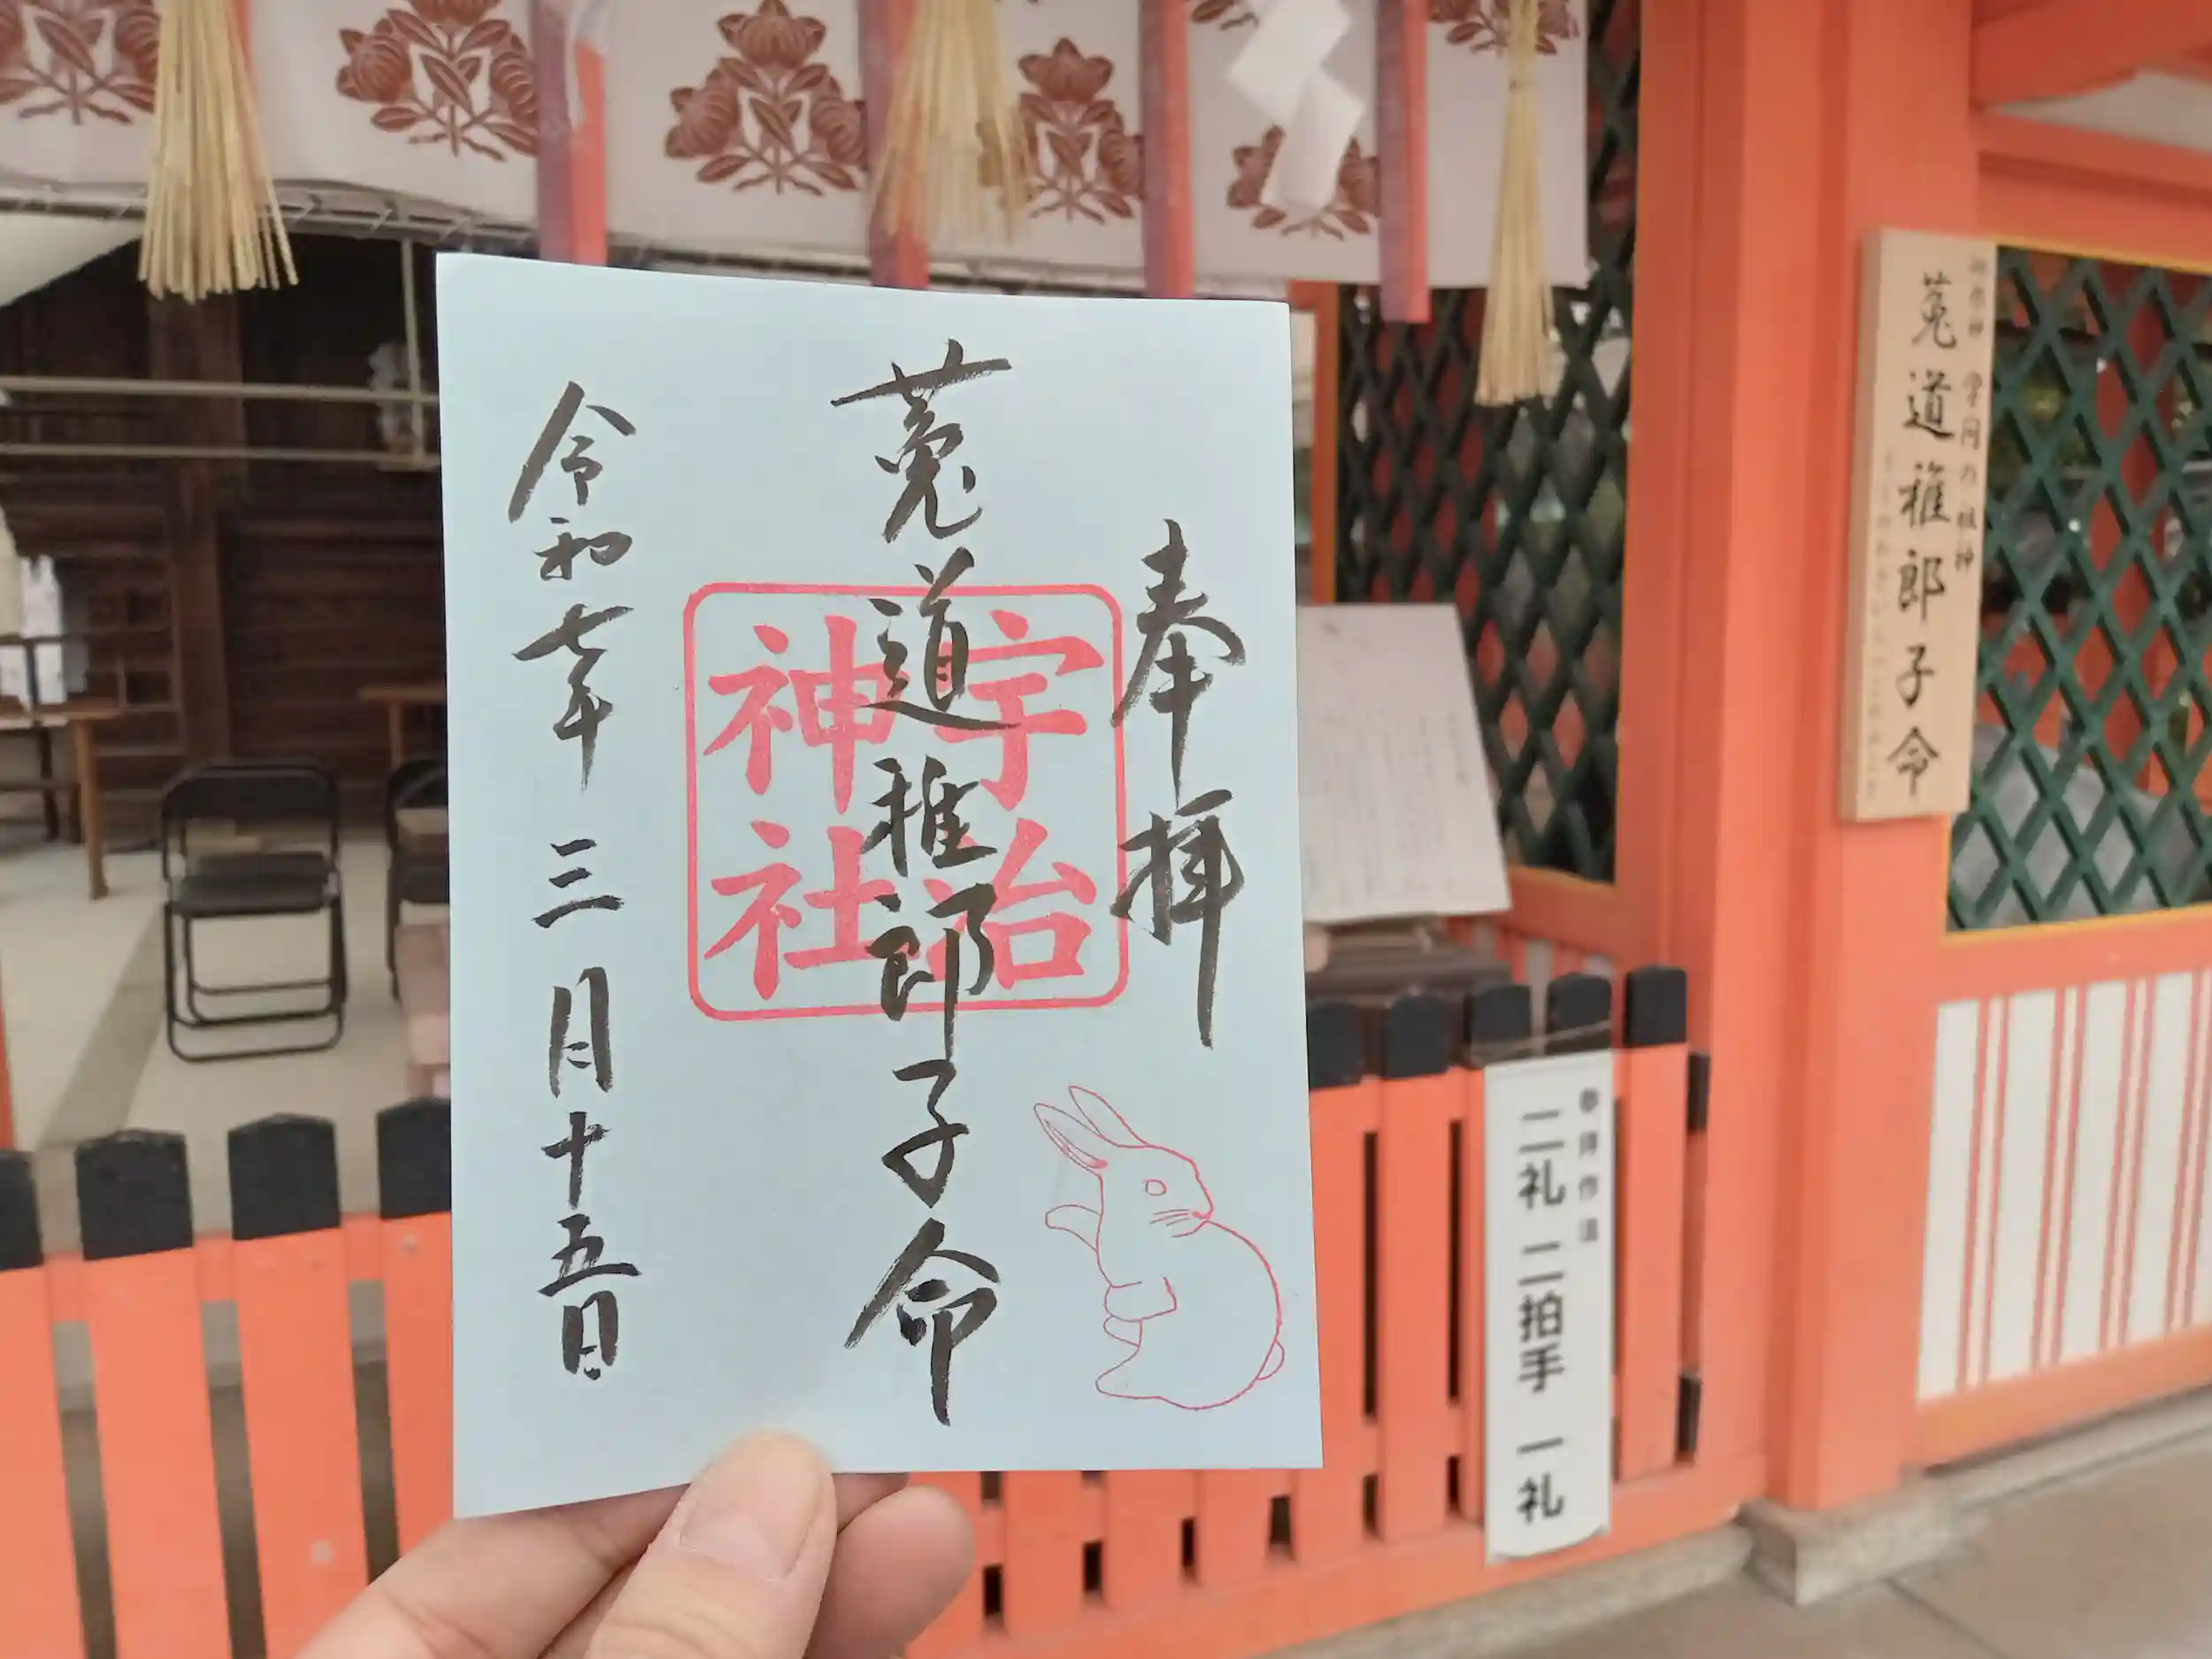 奉拝
菟道稚郎子命
宇治
神社
令和七年三月十五日
御祭神 学問の祖神
菟道稚郎子命
参拝作法
二礼 二拍手 一礼